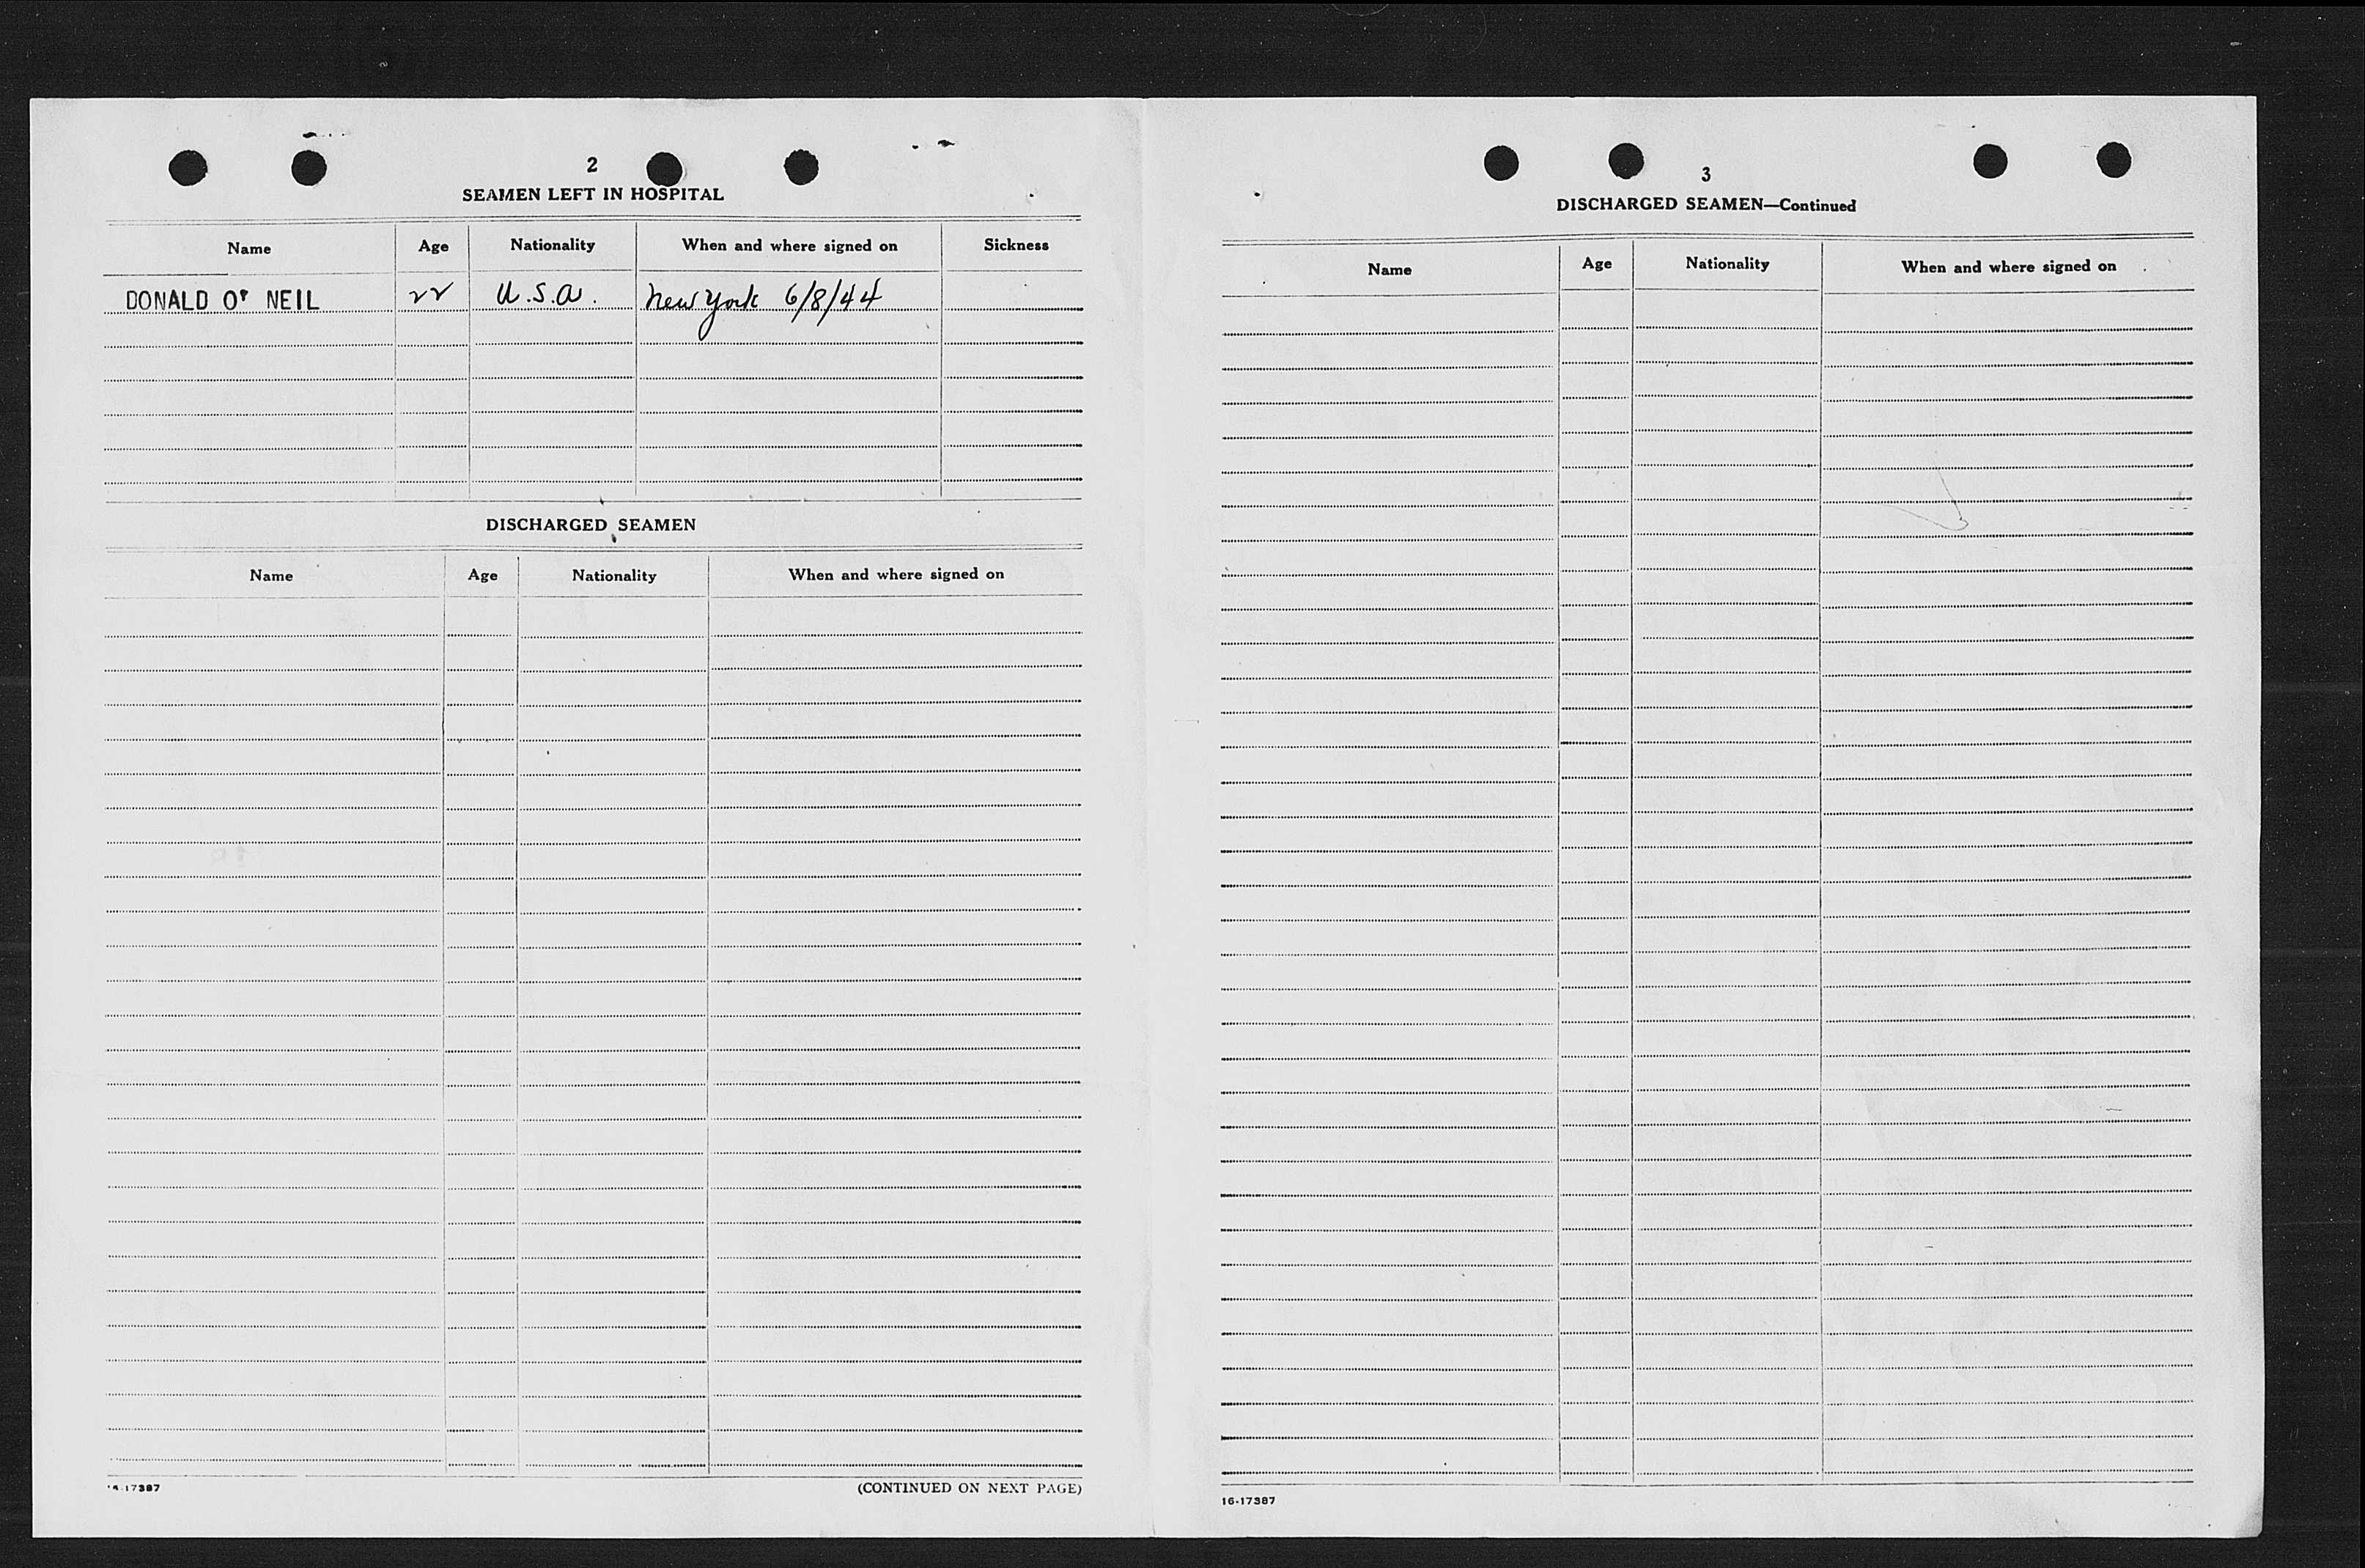 2
SEAMEN LEFT IN HOSPITAL
Name Age Nationality When and where signed on Sickness
DONALD O' NEIL 22 U.S.A. New York 6/8/44
DISCHARGED SEAMEN
Name Age Nationality When and where signed on
16-17387 (CONTINUED ON NEXT PAGE)
3
DISCHARGED SEAMEN—Continued
Name Age Nationality When and where signed on
16-17387